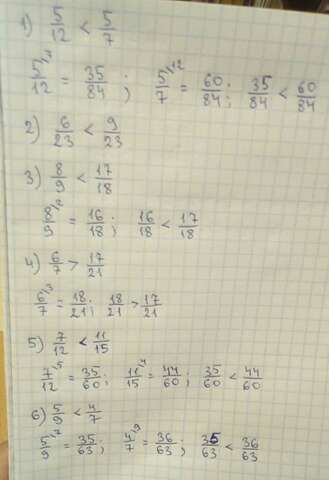 1) 5/12 < 5/7
5^7/12 = 35/84; 5^12/7 = 60/84; 35/84 < 60/84
2) 6/23 < 9/23
3) 8/9 < 17/18
8^2/9 = 16/18; 16/18 < 17/18
4) 6/7 > 17/21
6^3/7 = 18/21; 18/21 > 17/21
5) 7/12 < 11/15
7^5/12 = 35/60; 11^4/15 = 44/60; 35/60 < 44/60
6) 5/9 < 4/7
5^7/9 = 35/63; 4^9/7 = 36/63; 35/63 < 36/63